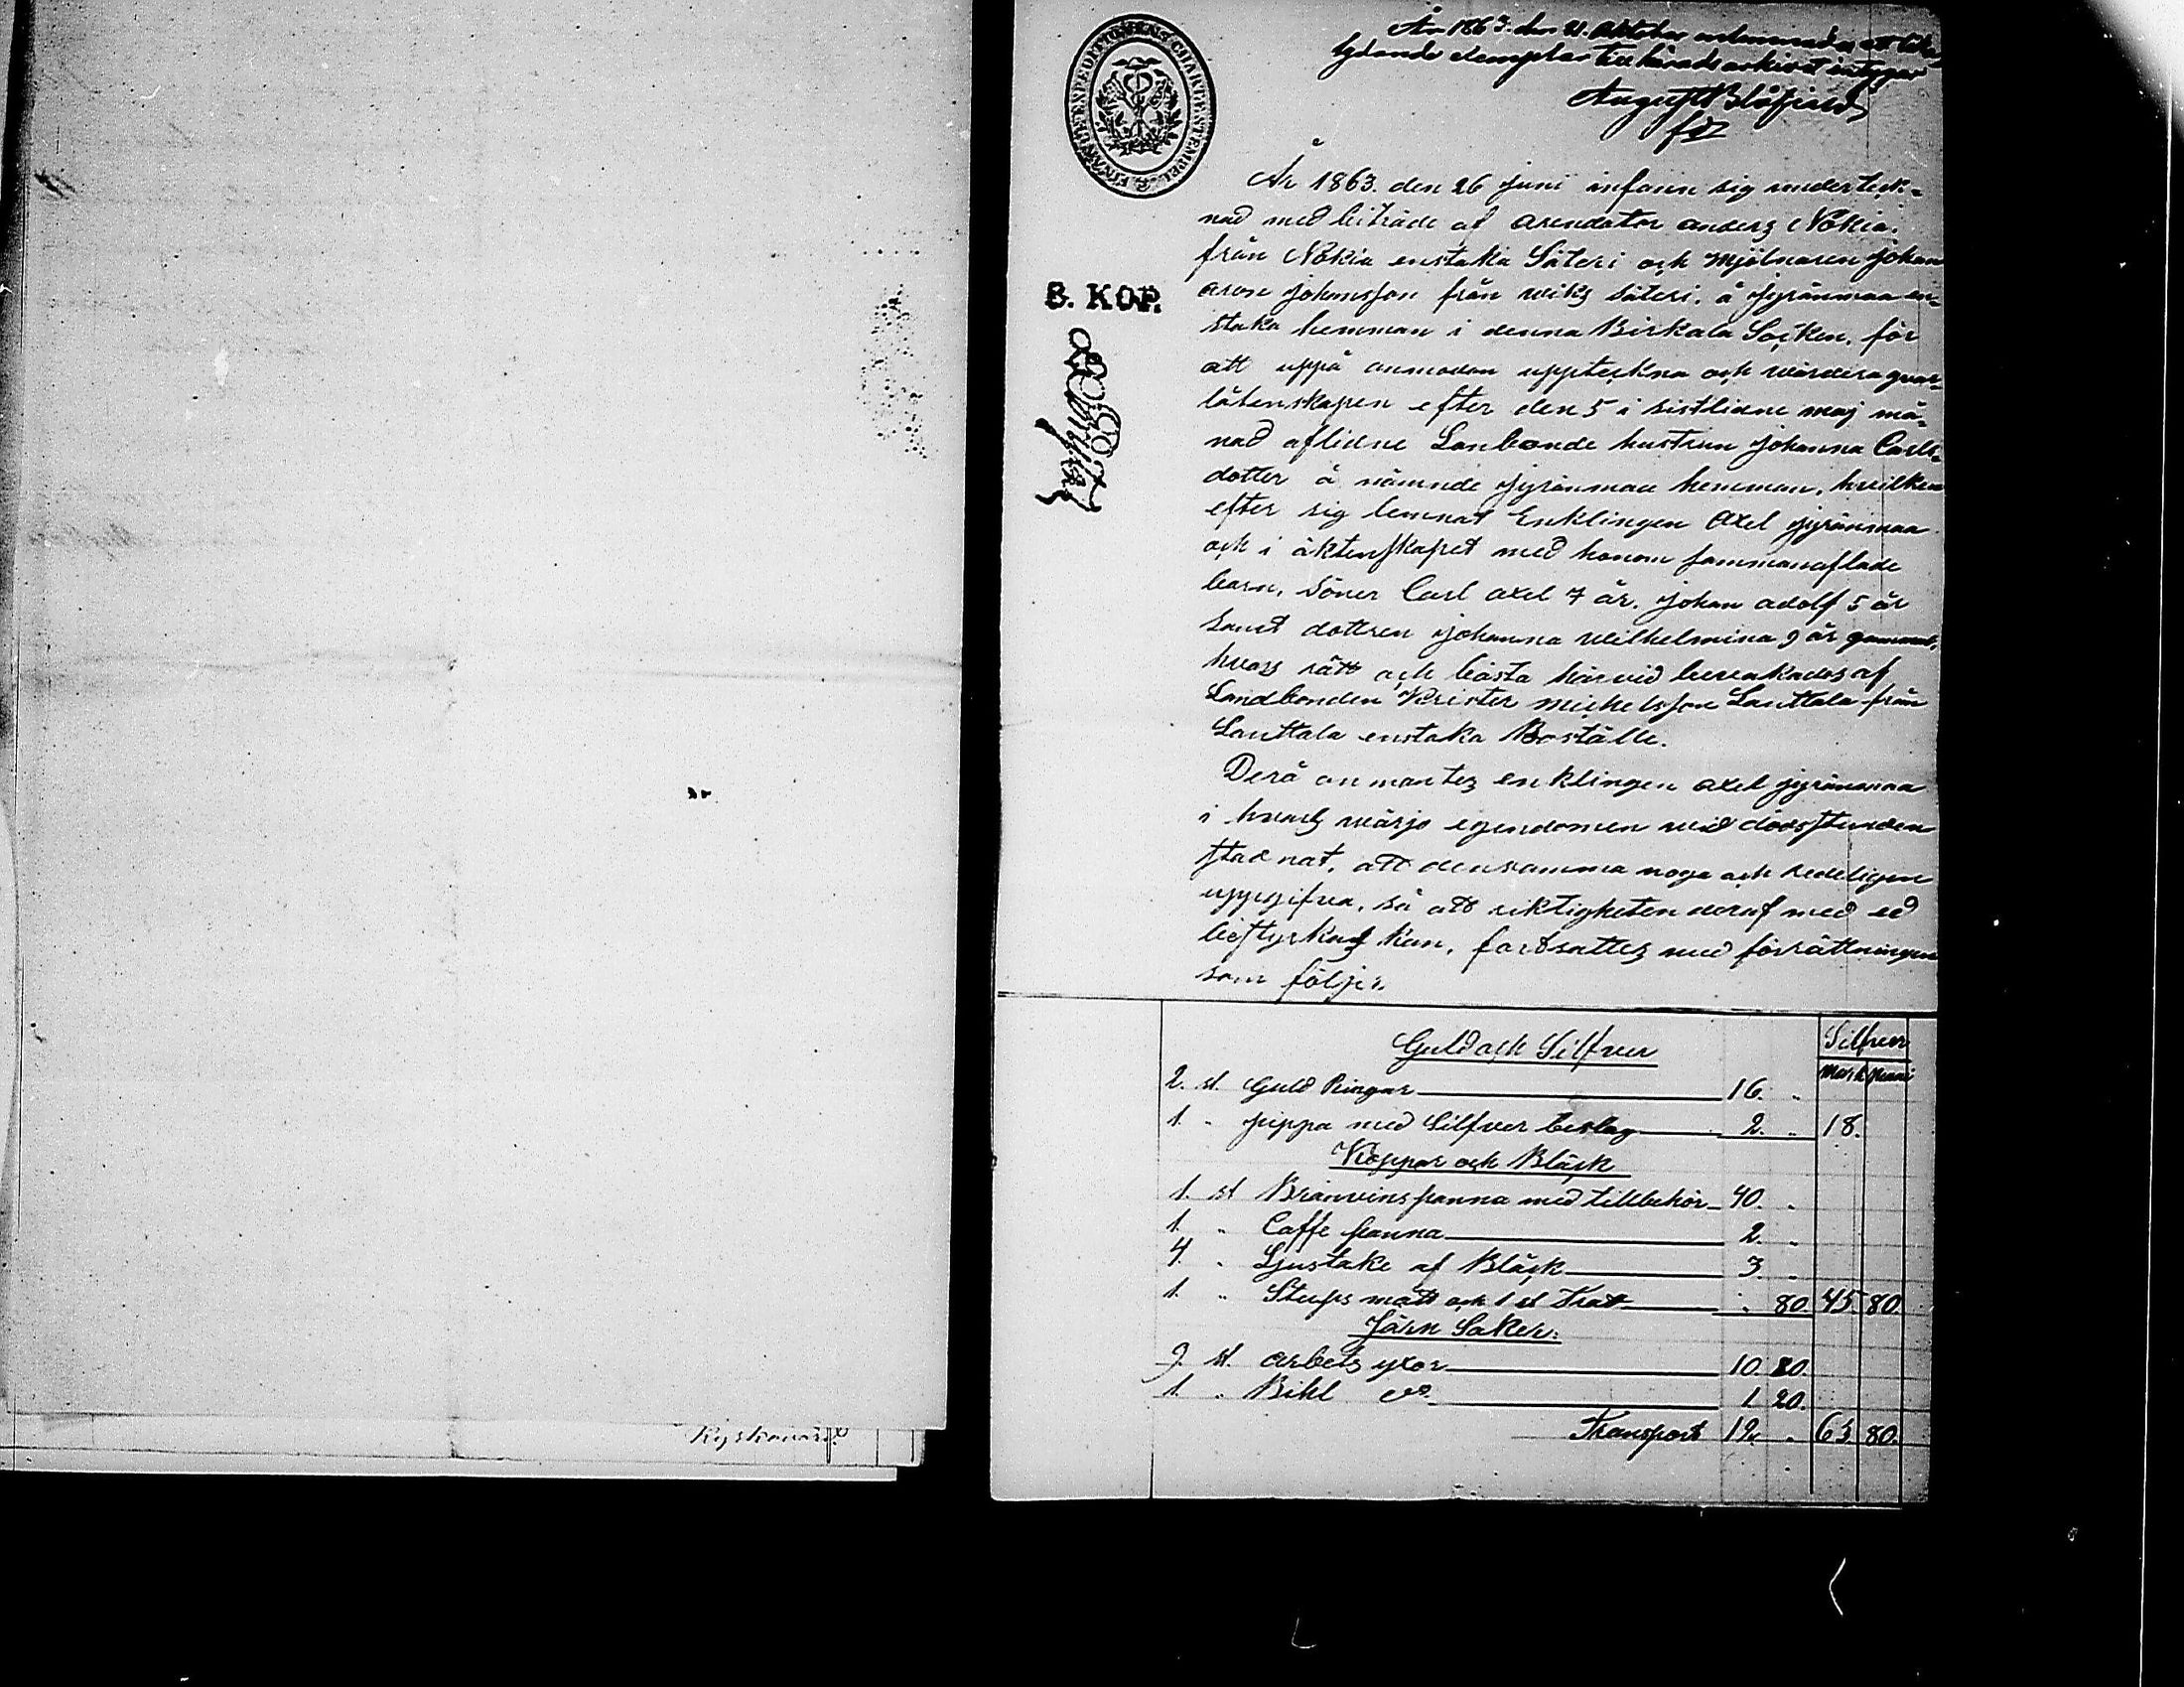 År 1863. den 21. Oktober emottaget ett lika
lydande exemplar till häradsarkivet intygar
August Blåfield
8. KOP.
År 1863. den 26 Juni infann sig underteck-
nad med biträde af arendator anders Nokia.
från Nokia enstaka Säteri och mjölnaren Johan
aron Johansson från wiks säteri. å Jyränmaa en-
staka hemman i denna Birkala Socken, för
att uppå anmodan uppteckna och värdera qvar-
låtenskapen efter den 5 i sistlidne maj må-
nad aflidne Lanbonde hustrun Johanna Carls-
dotter å nämnde Jyränmaa hemman, hvilken
efter sig lemnat Enklingen Axel Jyränmaa
och i äktenskapet med honom sammanaflade
barn, Söner Carl axel 7 år. Johan adolf 5 år
samt dottren Johanna Wilhelmina 9 år gammal,
hvars rätt och bästa härvid bevakades af
Landbonden Krister Michelsson Lauttala från
Lauttala enstaka Boställe.
Derå anmantes enklingen axel Jyränmaa
i hvars wärjo egendomen wid dödsstunden
stadnat, att densamma noga och redeligen
uppgifva, så att riktigheten deraf med ed
bestyrkas kan, fortsattes med förrättningen
som följer.
Silfver
Guld och Silfver mark penni
2. st. Guld Ringar 16. "
1. " pippa med Silfver beslag 2. " 18.
Koppar och Bläck
1. st Bränvinspanna med tillbehör 40. "
1. " Caffe panna 2. "
4. " Ljustake af Bläck 3. "
1. " Stups mått och 1 st Tratt " 80. 45 80.
Järn Saker.
9. st. arbets yxor 10. 80.
1. " Bihl do 1 20.
Transport 12. " 63 80.